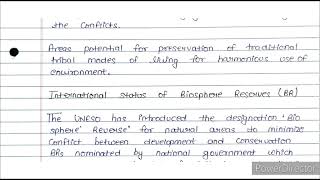 the conflicts.
Areas potential for preservation of traditional
tribal modes of living for harmonious use of
environment.
International status of Biosphere Reserves (BR)
The UNESO has introduced the designation 'Bio
sphere' Reverse' for natural areas to minimize
conflict between development and conservation
BRs nominated by national government which
PowerDirector